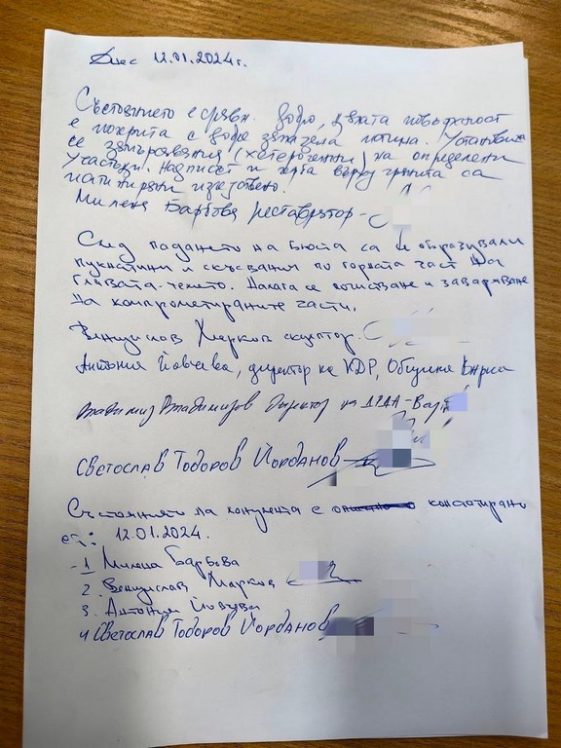 Днес 12.01.2024г.
Състоянието е сравн. добро, цялата повърхност
е покрита с добре запазена патина. Установих
се замърсявания (хетерогенни) на определени
участъци. Надписът и върху гранита са
патинирани изкуствено.
Милена Барбова реставратор -
След падането на бюста са се образували
пукнатини и скъсвания по горната част на
главата-челото. Налага се почистване и заваряване
на компрометираните части.
Венцислав Марков скулптор.
Антония Йовчева, директор на КДР, Община Варна
Владимир Владимиров Директор на ДРДА-Варна
Светослав Тодоров Йорданов
Състоянието на монумента е констатирано
от: 12.01.2024.
1 Милена Барбова
2. Венцислав Марков
3. Антония Йовчева
4 Светослав Тодоров Йорданов